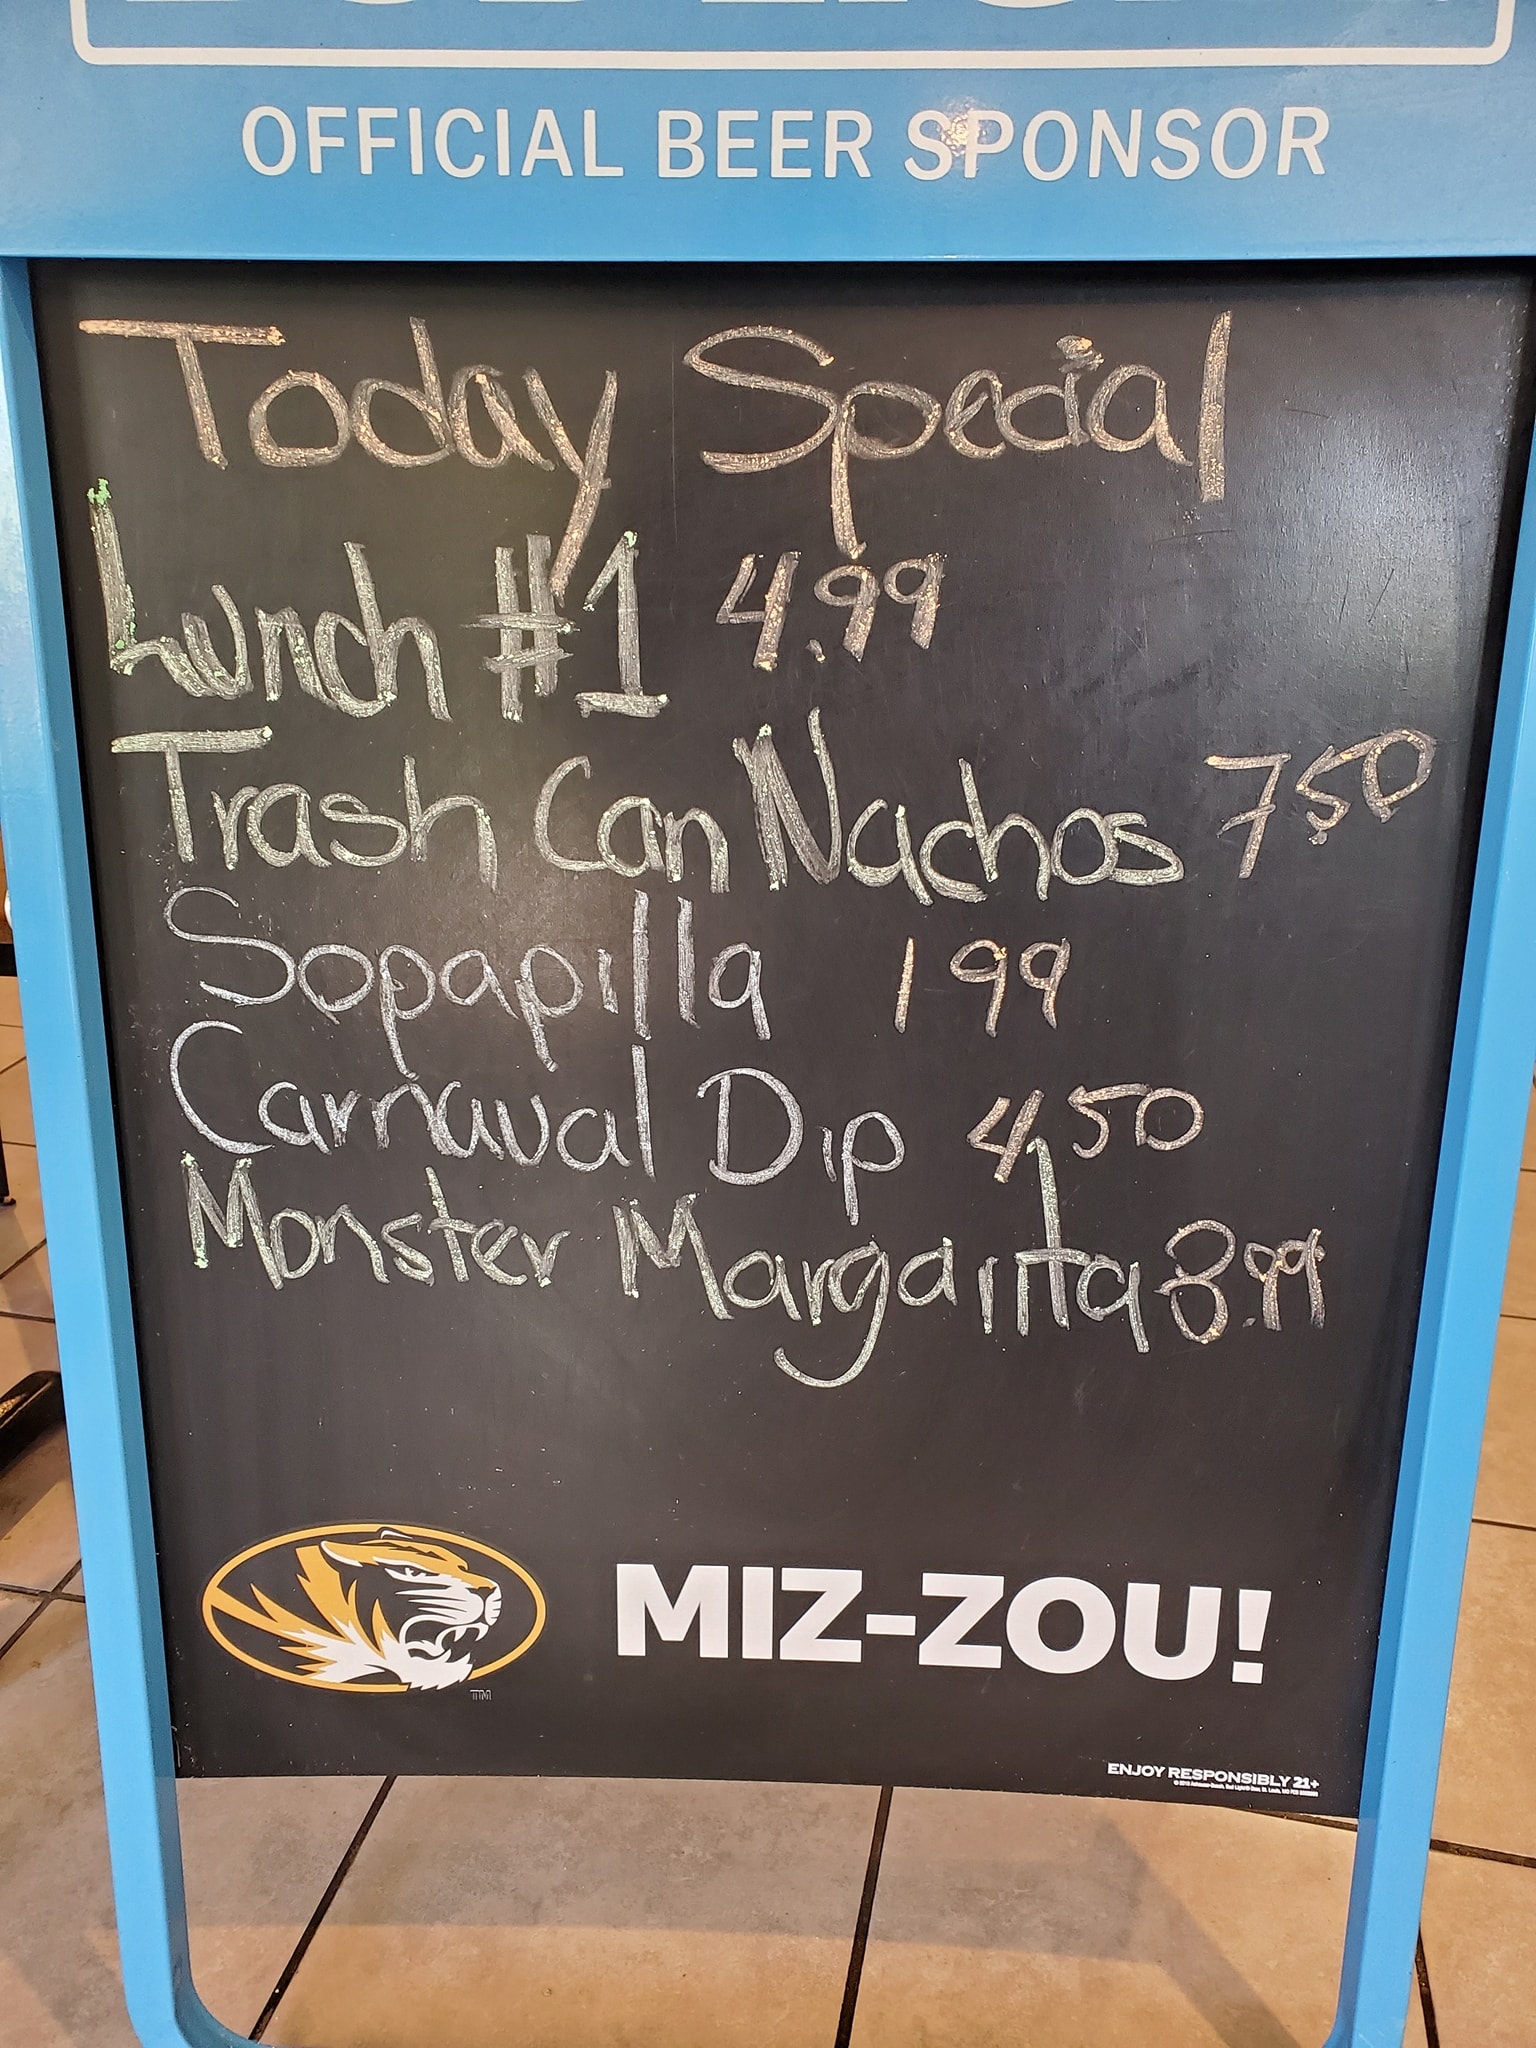 OFFICIAL BEER SPONSOR
Today Special
Lunch #1 4.99
Trash Can Nachos 7.50
Sopapilla 1 99
Carnaval Dip 4.50
Monster Margarita 8.99
TM
MIZ-ZOU!
ENJOY RESPONSIBLY 21+